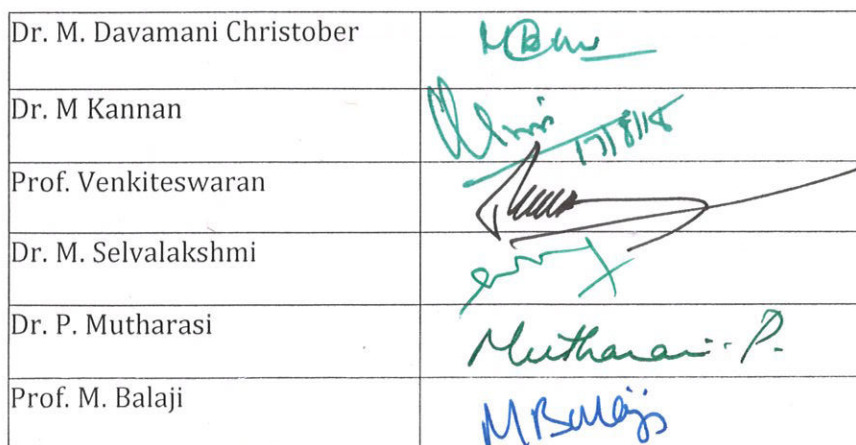 Dr. M. Davamani Christober
Dr. M Kannan
17/8/18
Prof. Venkiteswaran
Dr. M. Selvalakshmi
Dr. P. Mutharasi
Mutharasi. P.
Prof. M. Balaji
M Balaji